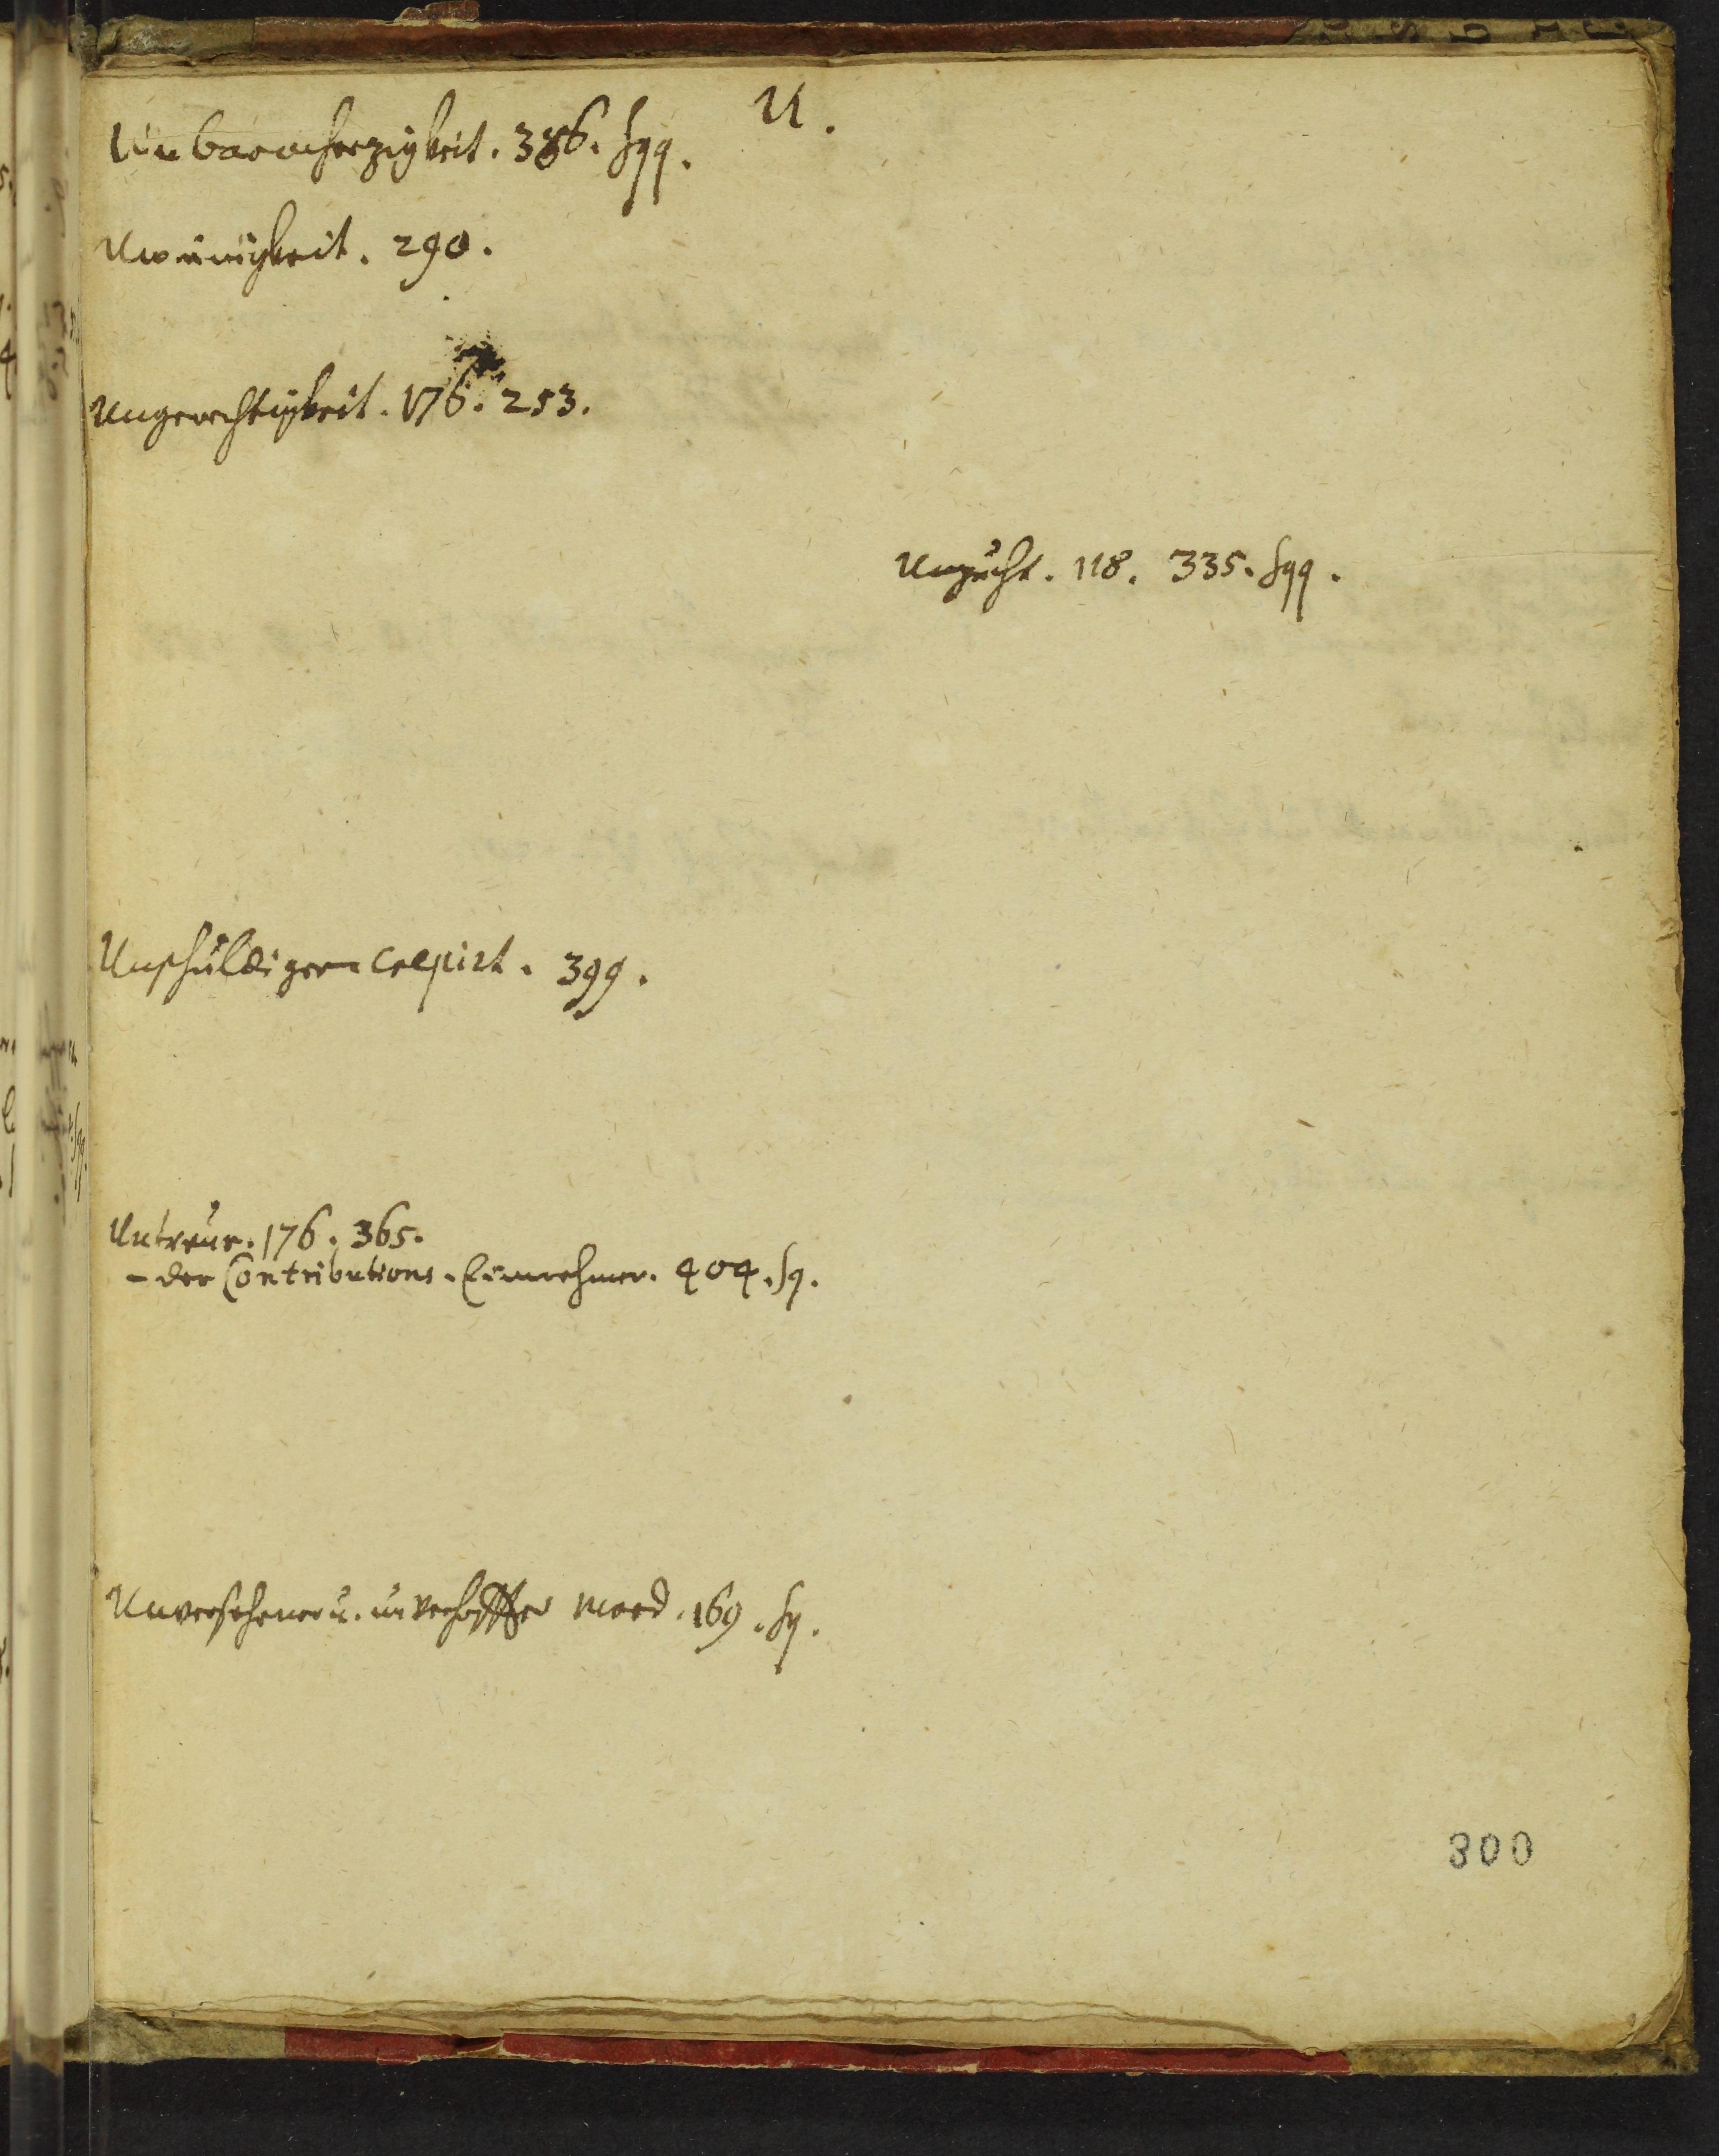 U.
Unbarmherzigkeit. 386. sqq.
Uneinigkeit. 290.
Ungerechtigkeit. 176. 253.
Unzucht. 118. 335. sqq.
Unschuldiger 399.
Untreue. 176. 365.
- der Contributions-Einnehmer. 404. sq.
Unversehener u. unverhoffter Mord. 169. sq.
300